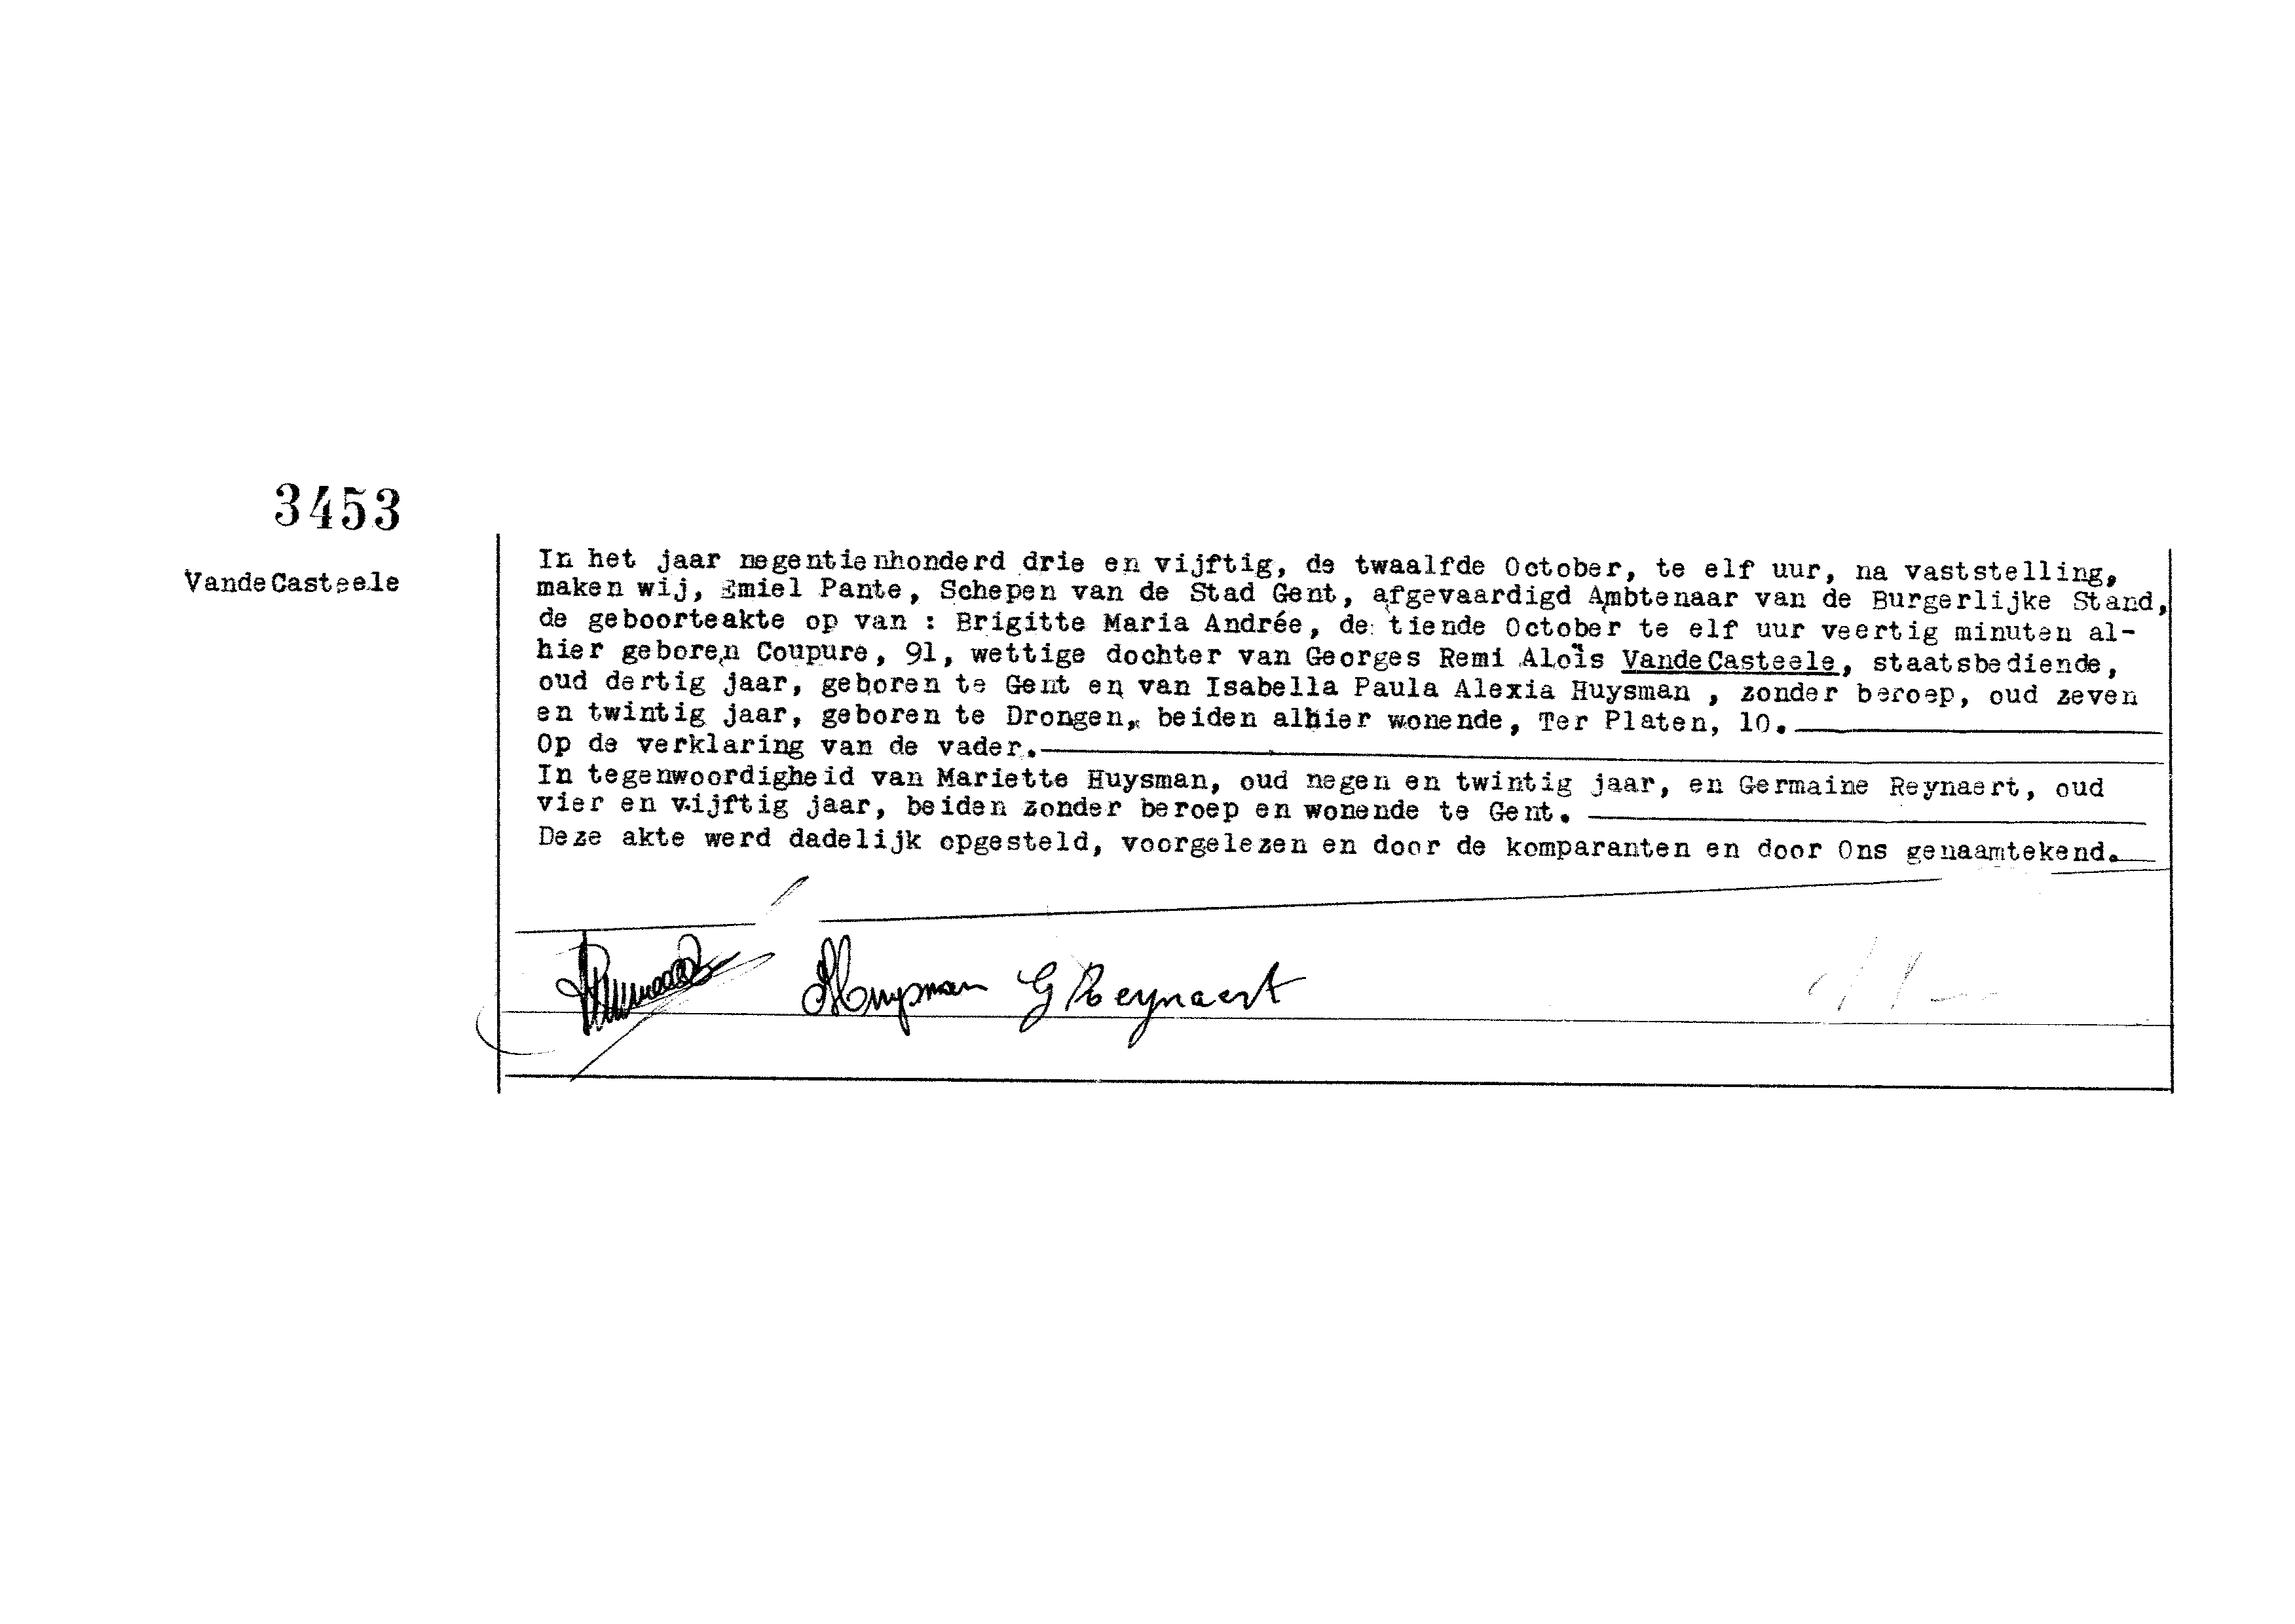 3453
VandeCasteele
In het jaar negentienhonderd drie en vijftig, de twaalfde October, te elf uur, na vaststelling,
maken wij, Emiel Pante, Schepen van de Stad Gent, afgevaardigd Ambtenaar van de Burgerlijke Stand,
de geboorteakte op van : Brigitte Maria Andrée, de tiende October te elf uur veertig minuten al-
hier geboren Coupure, 91, wettige dochter van Georges Remi Aloïs VandeCasteele, staatsbediende,
oud dertig jaar, geboren te Gent en van Isabella Paula Alexia Huysman , zonder beroep, oud zeven
en twintig jaar, geboren te Drongen, beiden alhier wonende, Ter Platen, 10.
Op de verklaring van de vader.
In tegenwoordigheid van Mariette Huysman, oud negen en twintig jaar, en Germaine Reynaert, oud
vier en vijftig jaar, beiden zonder beroep en wonende te Gent.
Deze akte werd dadelijk opgesteld, voorgelezen en door de komparanten en door Ons genaamtekend.
MHuysman G Reynaert